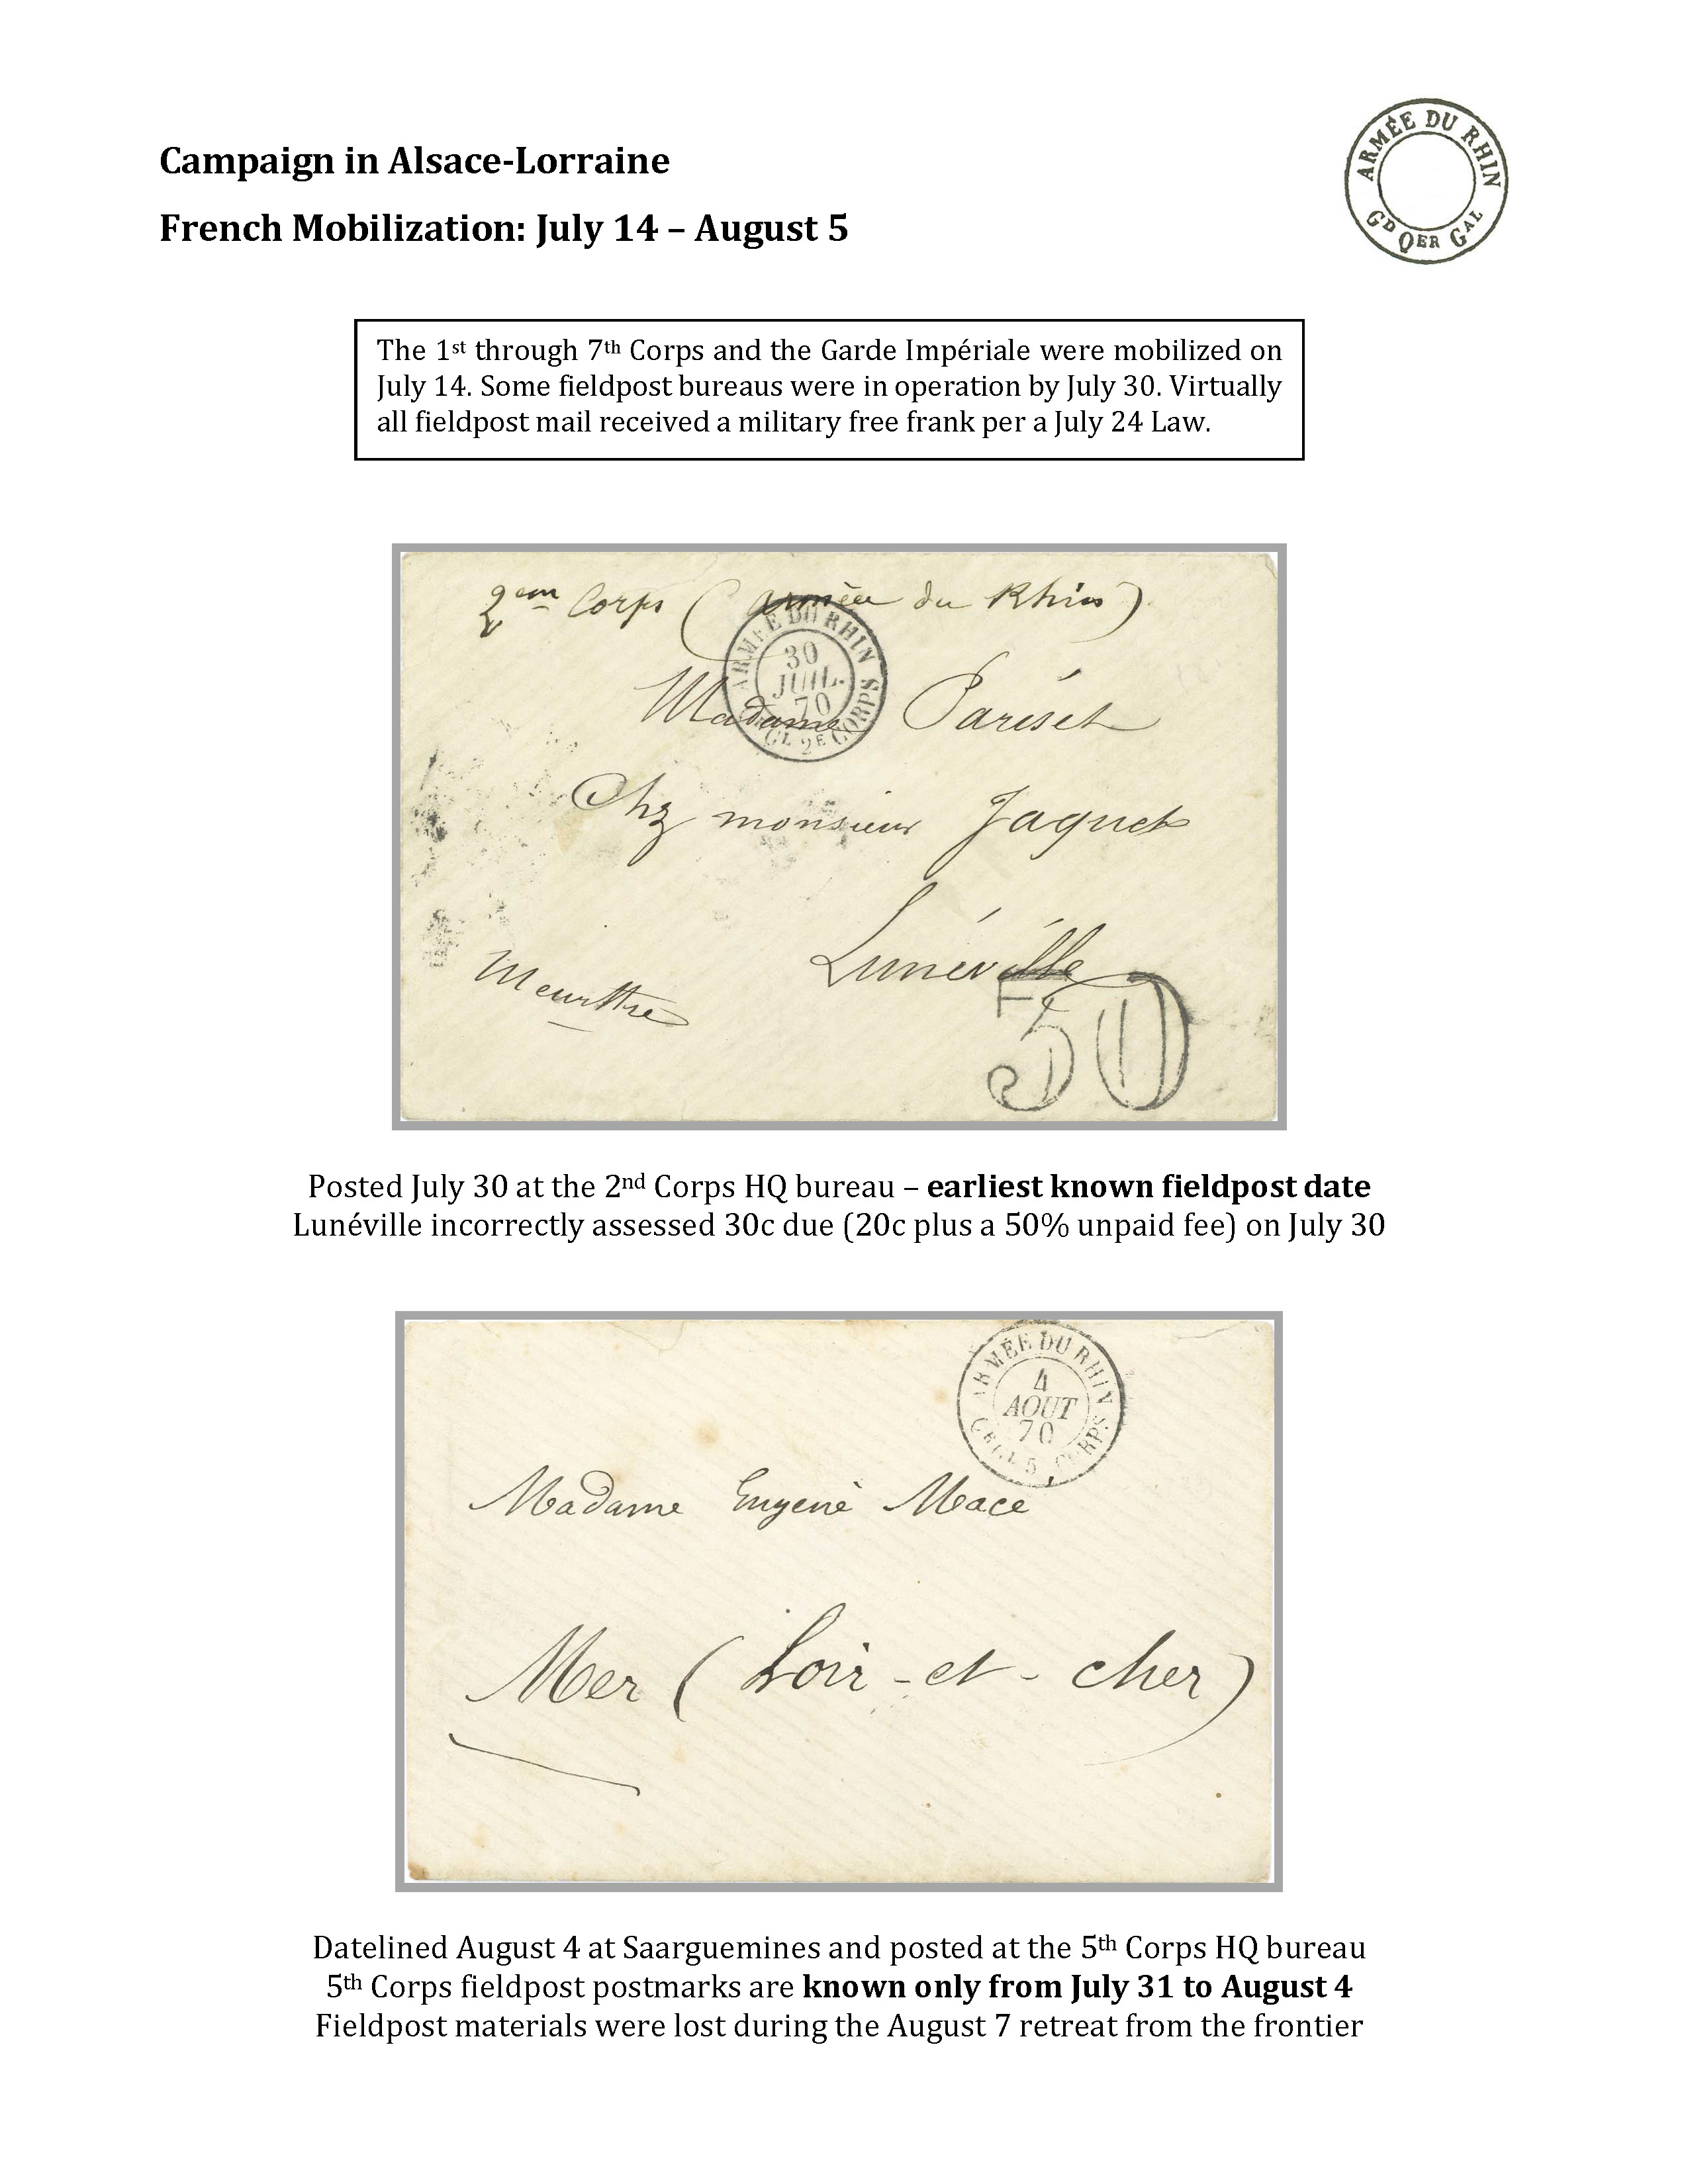 Campaign in Alsace-Lorraine
French Mobilization: July 14 – August 5
ARMÉE DU RHIN
GD QER GAL
The 1st through 7th Corps and the Garde Impériale were mobilized on
July 14. Some fieldpost bureaus were in operation by July 30. Virtually
all fieldpost mail received a military free frank per a July 24 Law.
2em Corps (armée du Rhin)
ARMÉE DU RHIN
30
JUIL.
70
CL 2E CORPS
Madame Pariset
Chz monsieur Jaquet
Lunéville
Meurthe
30
Posted July 30 at the 2nd Corps HQ bureau – earliest known fieldpost date
Lunéville incorrectly assessed 30c due (20c plus a 50% unpaid fee) on July 30
ARMÉE DU RHIN
4
AOUT
70
5 CORPS
Madame Eugenè Mace
Mer (Loir-et-cher)
Datelined August 4 at Saarguemines and posted at the 5th Corps HQ bureau
5th Corps fieldpost postmarks are known only from July 31 to August 4
Fieldpost materials were lost during the August 7 retreat from the frontier